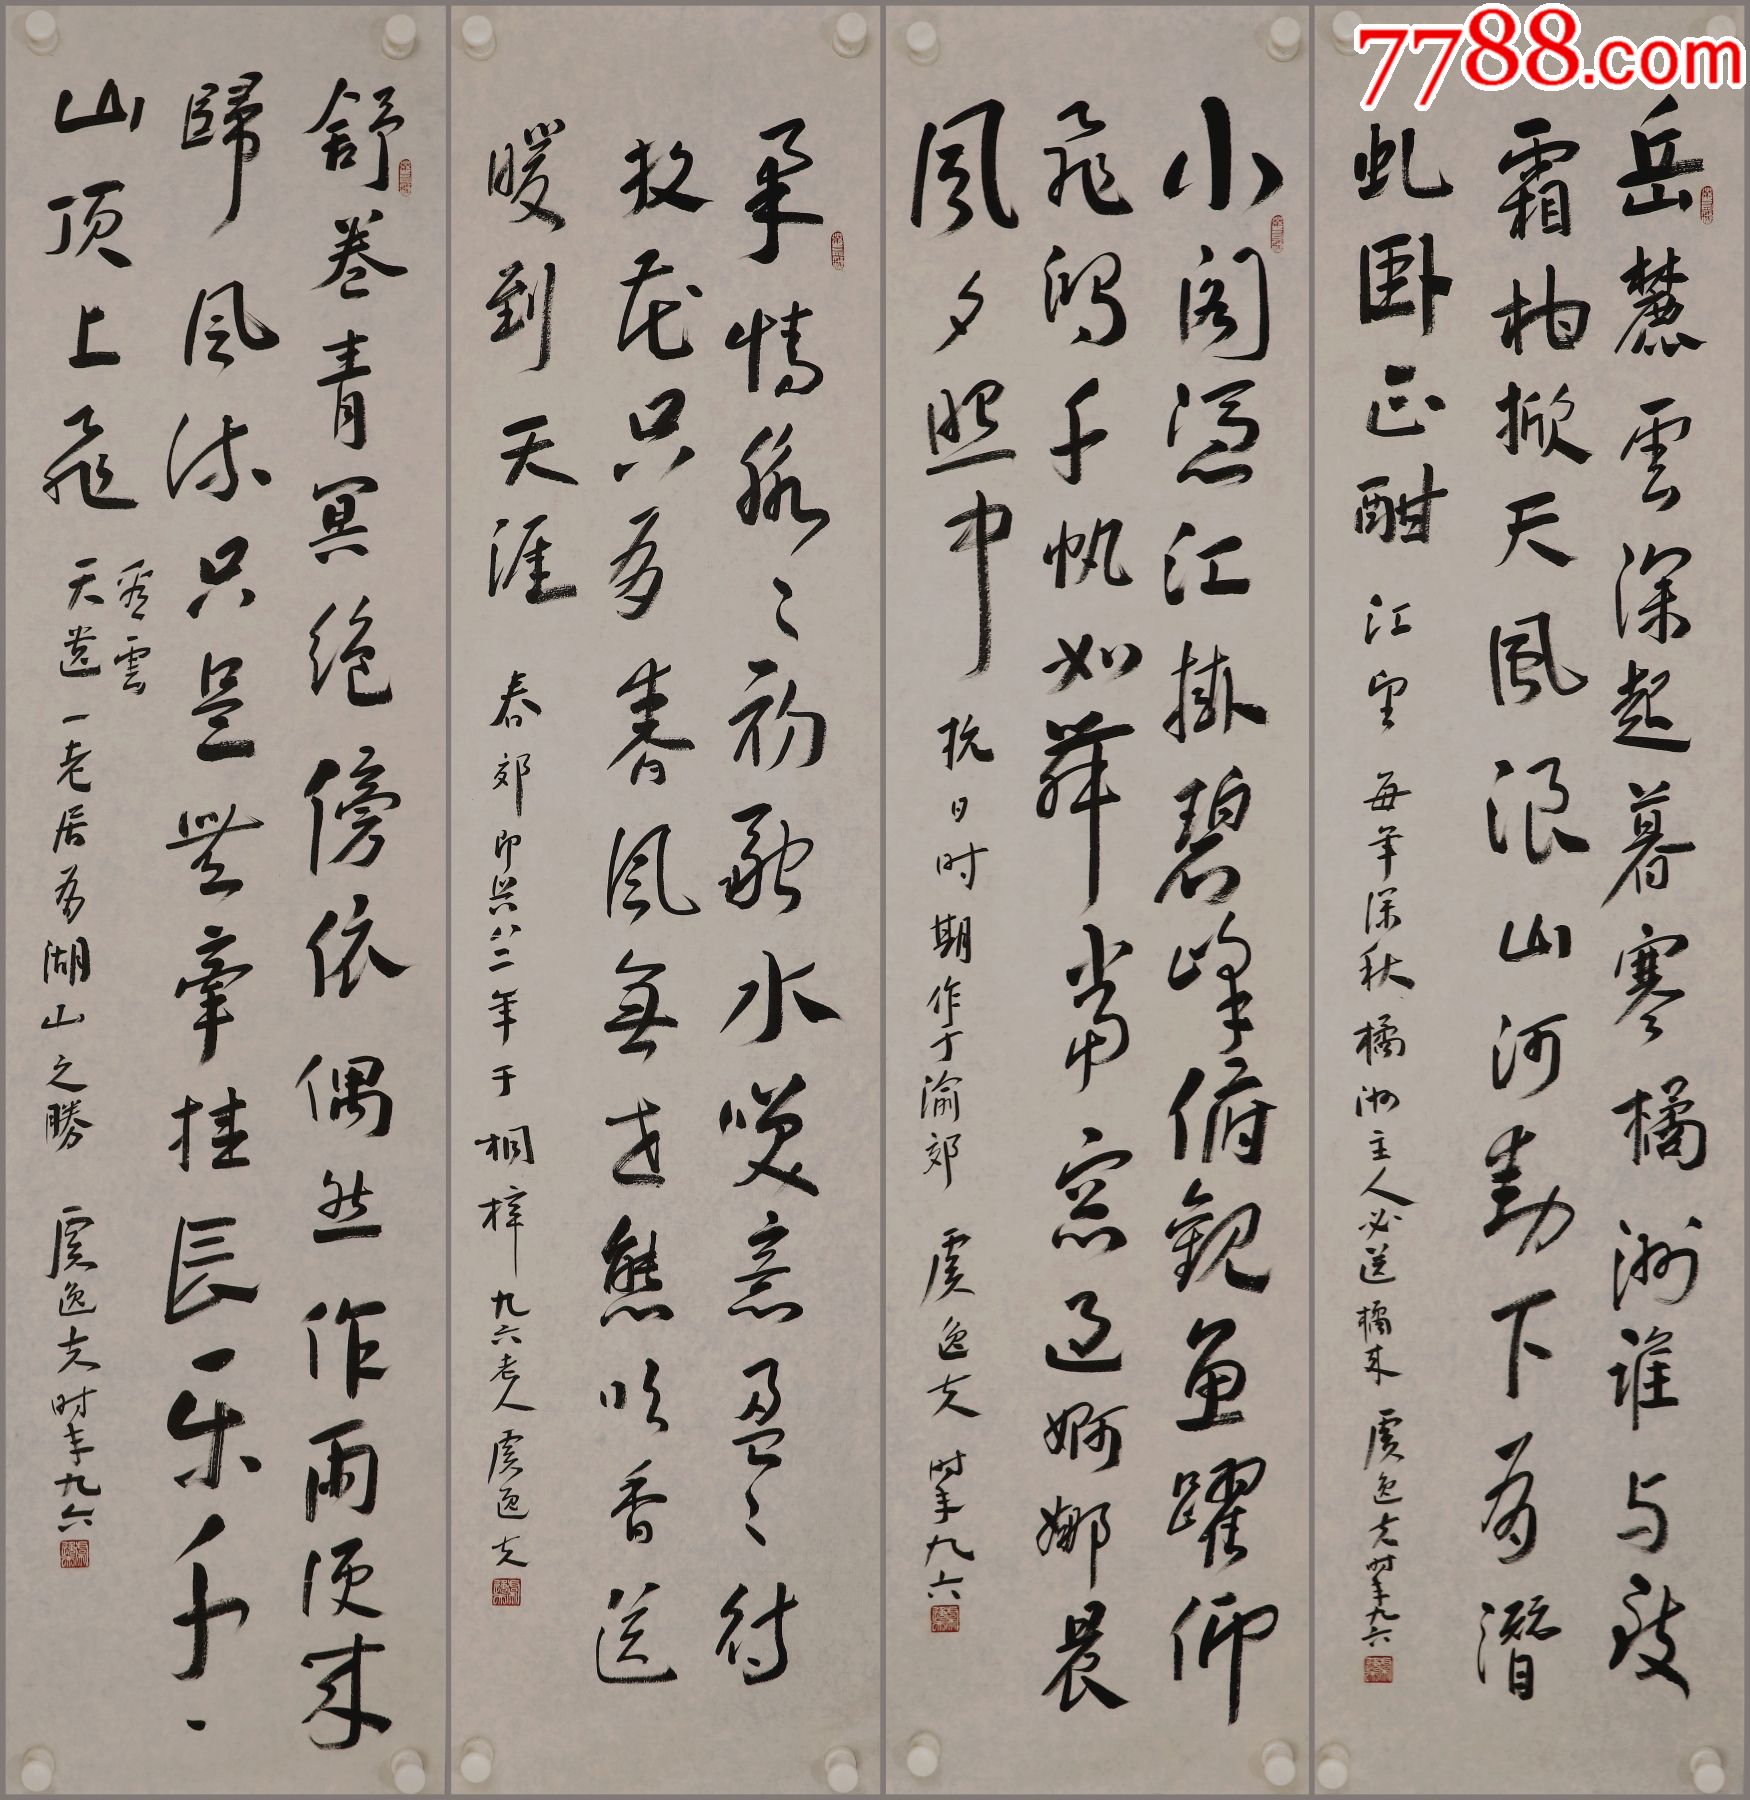 7788.com
岳麓雲深起暮寒橘洲誰与致
霜柑掀天風浪山河動下有潛
虬卧正酣
江望 每年深秋橘洲主人必送橘来 虞逸夫时年九六
小阁凭江掛碧峰俯観魚躍仰
飛鴻千帆如舞当窓過婀娜晨
風夕照中
抗日时期作于渝郊 虞逸夫 时年九六
柔情脉々初融水笑意盈々待
放花只有春風無世態吹香送
暖到天涯
春郊即兴八二年于桐梓 九六老人虞逸夫
舒卷青冥绝傍依偶然作雨便来
歸風流只是無牵挂長乐千
山顶上飛
雲
天遗一老居有湖山之勝 虞逸夫时年九六